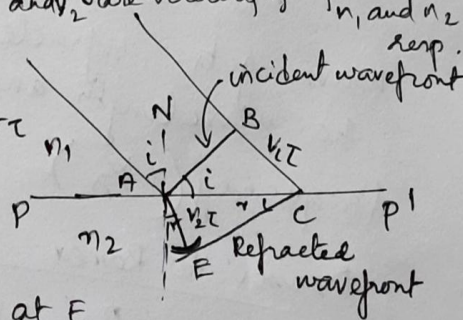 and v₂ are velocity of n₁ and n₂
resp.
incident wavefront
N
B
τ
n₁
i
v₁τ
A
i
P
v₂τ
r
C
P'
n₂
E
Refracted
wavefront
at E